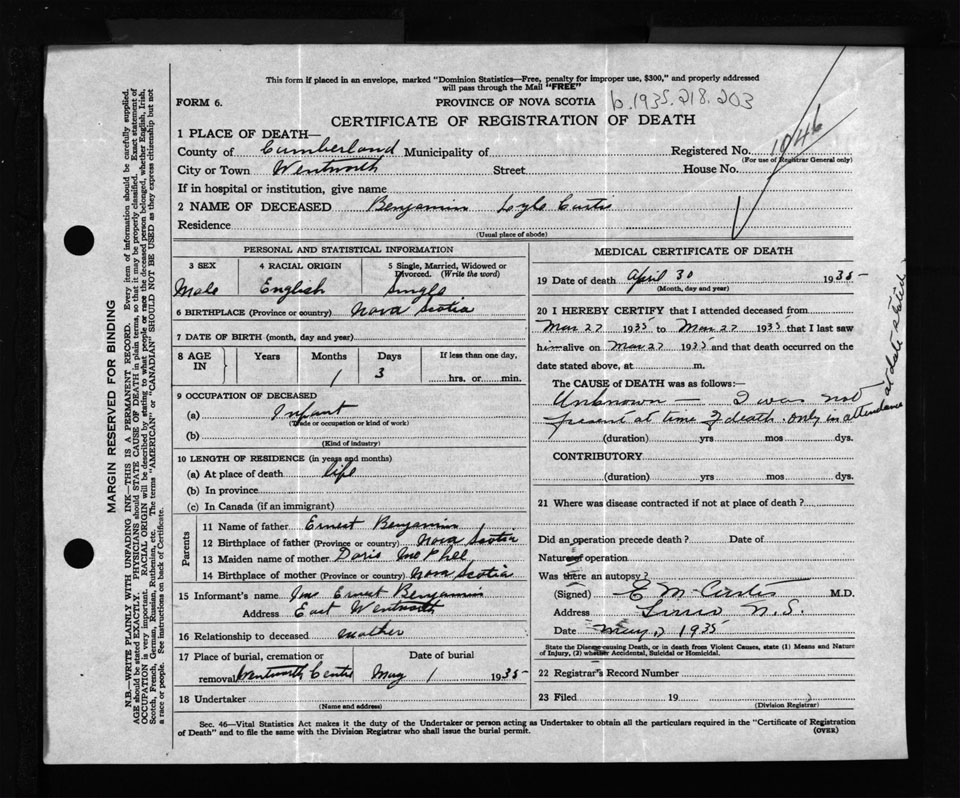 This form if placed in an envelope, marked "Dominion Statistics—Free, penalty for improper use, $300," and properly addressed
will pass through the Mail "FREE"
FORM 6.
PROVINCE OF NOVA SCOTIA
b.1935.218.203
CERTIFICATE OF REGISTRATION OF DEATH
1 PLACE OF DEATH—
County of Cumberland Municipality of
Registered No. 1046
(For use of Registrar General only)
City or Town Wentworth Street House No.
If in hospital or institution, give name
2 NAME OF DECEASED Benjamin Lyle Curtis
Residence
(Usual place of abode)
PERSONAL AND STATISTICAL INFORMATION
3 SEX
Male
4 RACIAL ORIGIN
English
5 Single, Married, Widowed or
Divorced. (Write the word)
Single
6 BIRTHPLACE (Province or country) Nova Scotia
7 DATE OF BIRTH (month, day and year)
8 AGE
IN
Years Months Days If less than one day,
1 3 hrs. or min.
9 OCCUPATION OF DECEASED
(a) Infant
(Trade or occupation or kind of work)
(b)
(Kind of industry)
10 LENGTH OF RESIDENCE (in years and months)
(a) At place of death life
(b) In province
(c) In Canada (if an immigrant)
Parents
11 Name of father Ernest Benjamin
12 Birthplace of father (Province or country) Nova Scotia
13 Maiden name of mother Doris McPhee
14 Birthplace of mother (Province or country) Nova Scotia
15 Informant's name Mrs Ernest Benjamin
Address East Wentworth
16 Relationship to deceased mother
17 Place of burial, cremation or
removal Wentworth Centre
Date of burial
May 1 1935
18 Undertaker
(Name and address)
MEDICAL CERTIFICATE OF DEATH
19 Date of death April 30 1935
(Month, day and year)
20 I HEREBY CERTIFY that I attended deceased from
Mar 27 1935 to Mar 27 1935 that I last saw
him alive on Mar 27 1935 and that death occurred on the
date stated above, at m.
The CAUSE of DEATH was as follows:—
Unknown — I was not
present at time of death. Only in attendance
at date stated
(duration) yrs mos dys.
CONTRIBUTORY
(duration) yrs mos dys.
21 Where was disease contracted if not at place of death?
Did an operation precede death? Date of
Nature of operation
Was there an autopsy?
(Signed) E M Curtis M.D.
Address Truro N.S.
Date May 1935
State the Disease causing Death, or in death from Violent Causes, state (1) Means and Nature
of Injury, (2) whether Accidental, Suicidal or Homicidal.
22 Registrar's Record Number
23 Filed 19
(Division Registrar)
Sec. 46—Vital Statistics Act makes it the duty of the Undertaker or person acting as Undertaker to obtain all the particulars required in the "Certificate of Registration
of Death" and to file the same with the Division Registrar who shall issue the burial permit.
(OVER)
MARGIN RESERVED FOR BINDING
N.B.—WRITE PLAINLY WITH UNFADING INK—THIS IS A PERMANENT RECORD. Every item of information should be carefully supplied.
AGE should be stated EXACTLY. PHYSICIANS should STATE CAUSE OF DEATH in plain terms, so that it may be properly classified. Exact statement of
OCCUPATION is very important. RACIAL ORIGIN will be described by stating to what people or race the deceased person belonged, whether English, Irish,
Scotch, French, German, Russian, Ruthenian, etc. The terms "AMERICAN" or "CANADIAN" SHOULD NOT BE USED as they express citizenship but not
a race or people. See instructions on back of Certificate.